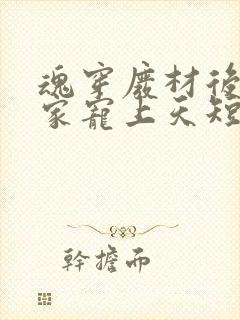 魂穿廢材後
家寵上天短
幹擔而